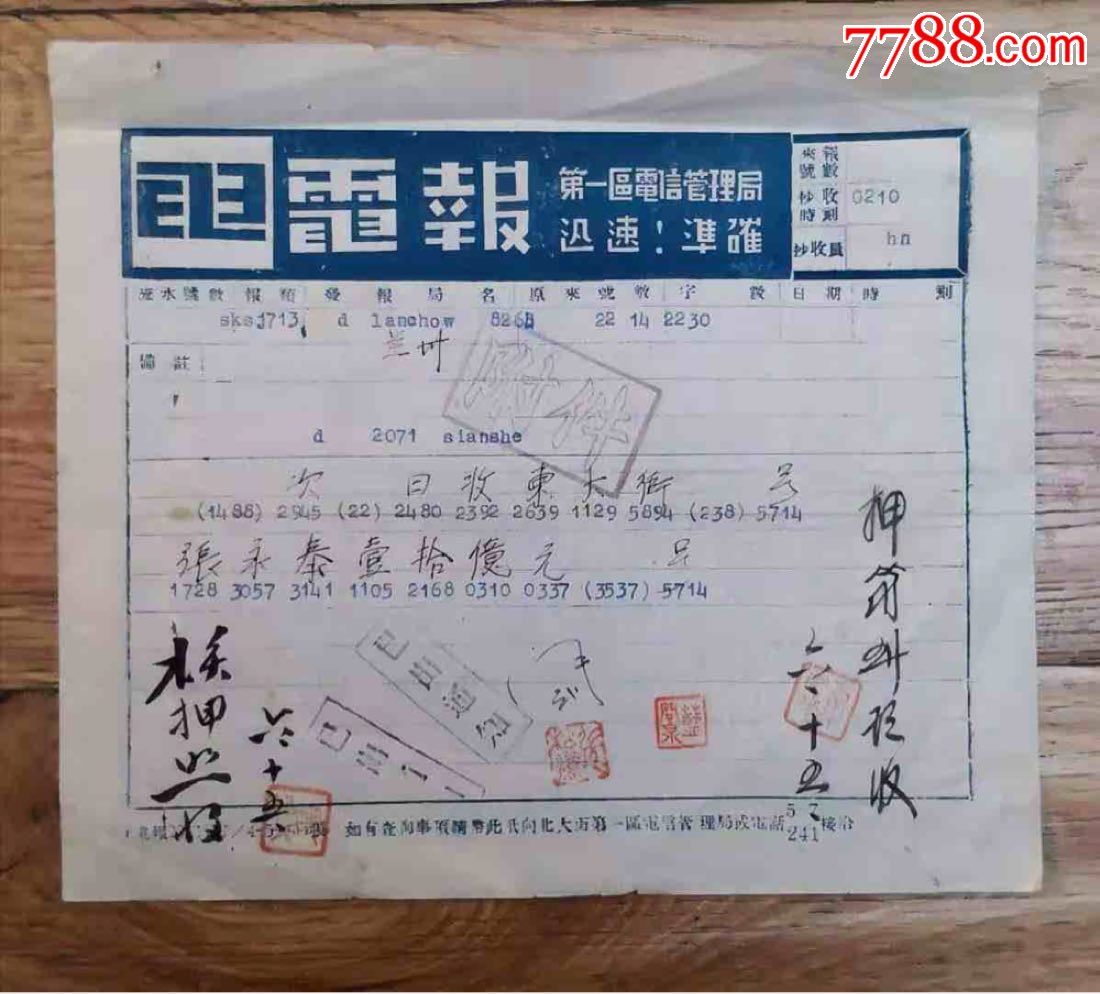 7788.com
電報
第一區電信管理局
迅速！準確
來報號數
抄收時刻 0210
抄收員 hn
流水號數 報類 發報局名 原來號數 字數 日期 時刻
sks1713 d lanchow 22 14 2230
兰州
備註
附件
d 2071 sianshe
次 日收東大街 号
(1488) 2945 (22) 2480 2392 2639 1129 5894 (238) 5714
張永泰壹拾億元 号
1728 3057 3141 1105 2168 0310 0337 (3537) 5714
押 收
六、十五
核押 
六、十五
已出通知
已出
如有查詢事項請帶此 向北大街第一區電信管理局或電話 241 接洽